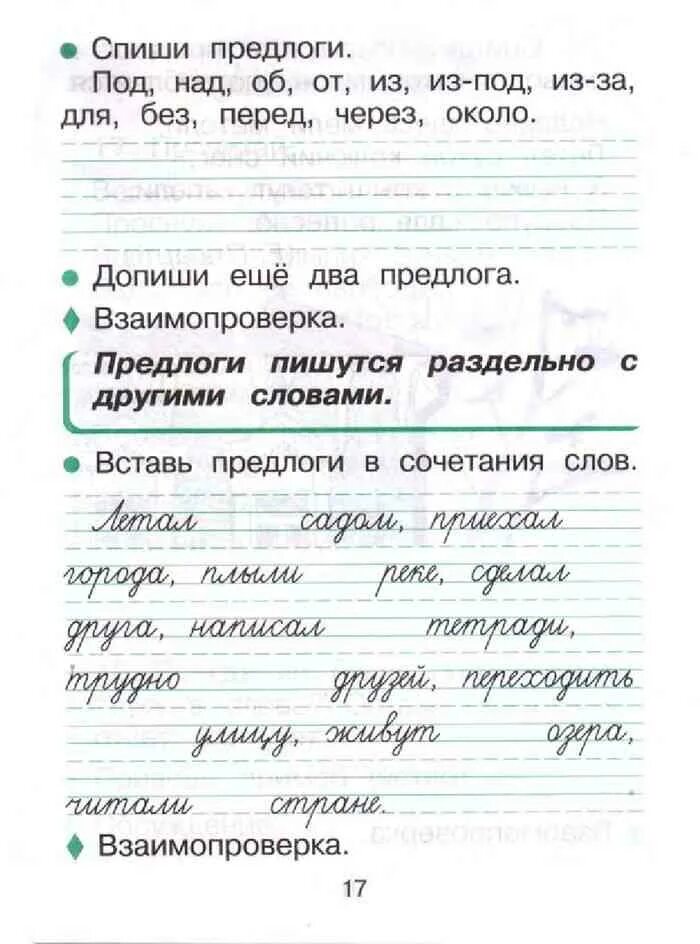 Спиши предлоги.
Под, над, об, от, из, из-под, из-за,
для, без, перед, через, около.
Допиши ещё два предлога.
Взаимопроверка.
Предлоги пишутся раздельно с
другими словами.
Вставь предлоги в сочетания слов.
Летал садом, приехал
города, плыли реке, сделал
друга, написал тетради,
трудно друзей, переходить
улицу, живут озера,
читали стране.
Взаимопроверка.
17